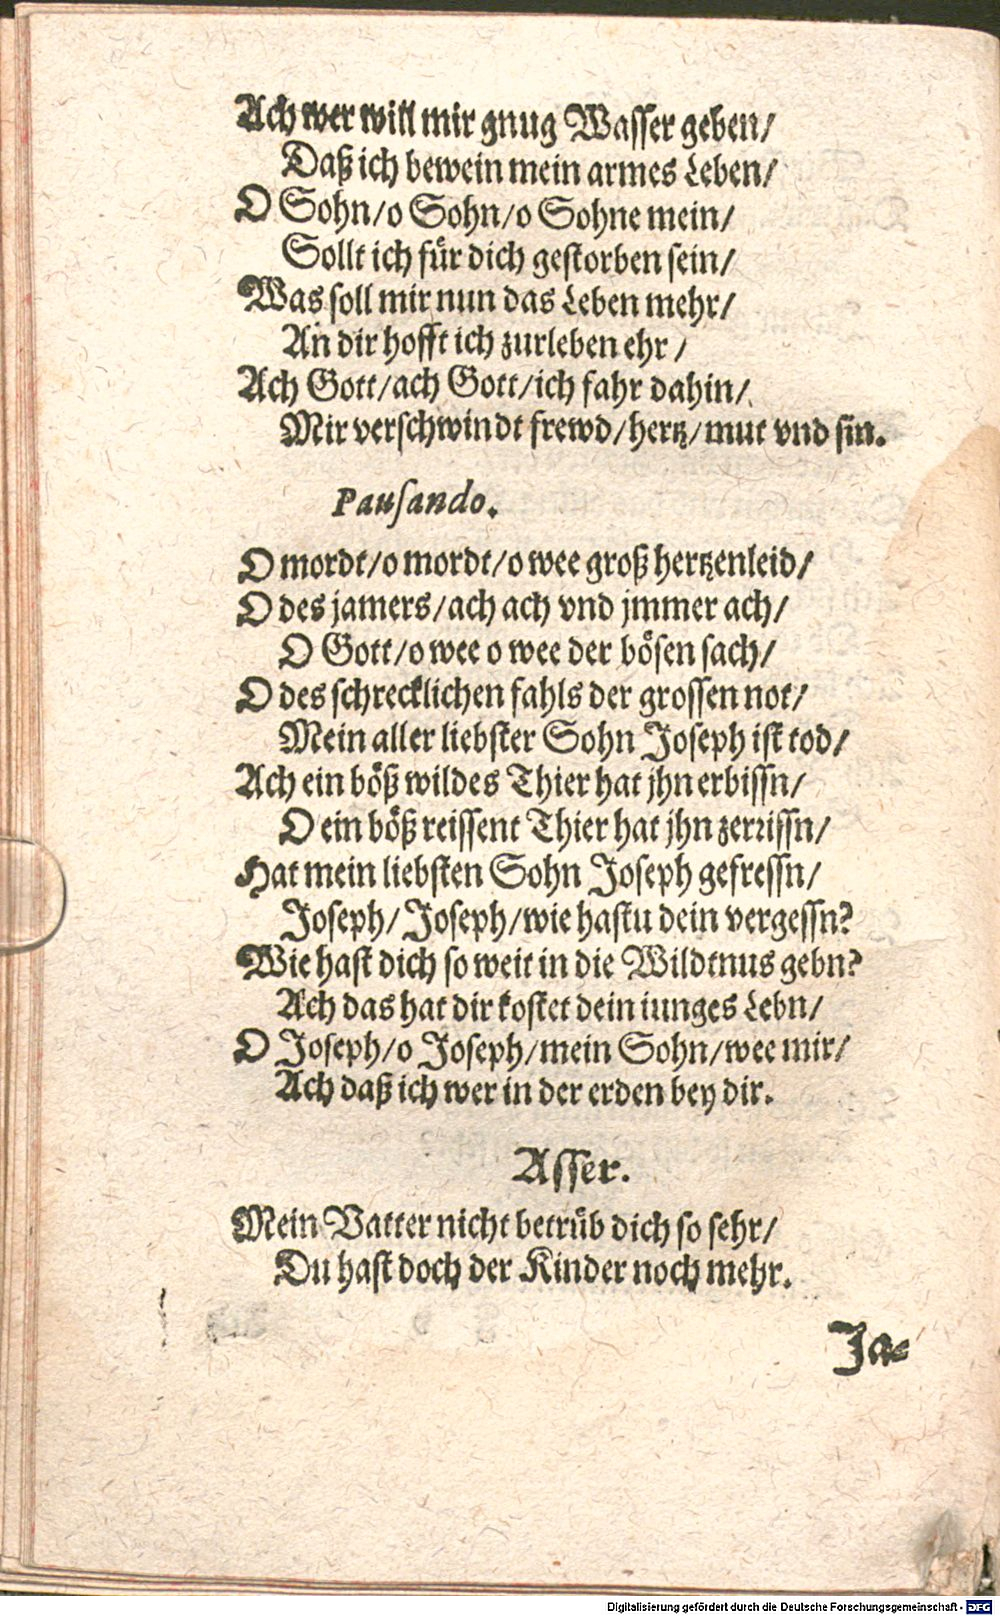 Ach wer will mir gnug Wasser geben/
Daß ich bewein mein armes Leben/
O Sohn/o Sohn/o Sohne mein/
Sollt ich für dich gestorben sein/
Was soll mir nun das Leben mehr/
An dir hofft ich zurleben ehr /
Ach Gott/ach Gott/ich fahr dahin/
Mir verschwindt frewd/hertz/mut vnd sin.
Pausando.
O mordt/o mordt/o wee groß hertzenleid/
O des jamers/ach ach vnd jmmer ach/
O Gott/o wee o wee der bösen sach/
O des schrecklichen fahls der grossen not/
Mein aller liebster Sohn Joseph ist tod/
Ach ein böß wildes Thier hat jhn erbissn/
O ein böß reissent Thier hat jhn zerrissn/
Hat mein liebsten Sohn Joseph gefressn/
Joseph/Joseph/wie hastu dein vergessn?
Wie hast dich so weit in die Wildtnus gebn?
Ach das hat dir kostet dein iunges Lebn/
O Joseph/o Joseph/mein Sohn/wee mir/
Ach daß ich wer in der erden bey dir.
Asser.
Mein Vatter nicht betrüb dich so sehr/
Du hast doch der Kinder noch mehr.
Ja-
Digitalisierung gefördert durch die Deutsche Forschungsgemeinschaft - DFG